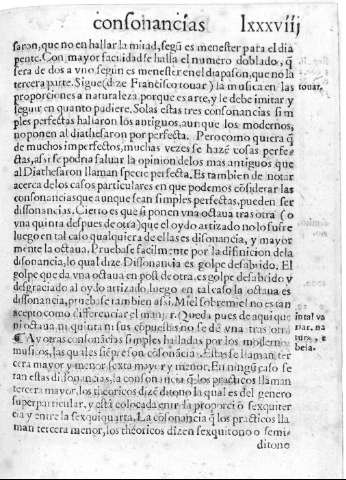 consonancias lxxxviij
saron, que no en hallar la mitad, segũ es menester para el dia
pente. Con mayor facilidad se halla el numero doblado, q̃
sera de dos a vno segũ es menester en el diapason, que no la
tercera parte. Sigue (dize Francisco touar) la musica en las
touar,
proporciones a naturaleza, porque es arte, y le debe imitar y
seguir en quanto pudiere. Solas estas tres consonancias sim
ples perfectas hallaron los antiguos, aun que los modernos,
no ponen al diathesaron por perfecta. Pero como quiera q̃
de muchos imperfectos, muchas vezes se hazẽ cosas perfe
ctas, assi se podria saluar la opinion de los mas antiguos que
al Diathesaron llaman specie perfecta. Es tambien de notar
acerca de los casos particulares en que podemos cõsiderar las
consonancias que aunque sean simples perfectas, pueden ser
dissonancias. Cierto es que si ponen vna octaua tras otra (o
vna quinta despues de otra) que el oydo artizado no lo sufre
luego en tal caso qualquiera de ellas es disonancia, y mayor
mente la octaua. Prueba se facilmente por la difinicion de la
disonancia, lo qual dize. Dissonancia es golpe desabrido. El
golpe que da vna octaua en post de otra, es golpe desabrido y
desgraciado al oydo artizado, luego en tal caso la octaua es
dissonancia, prueba se tambien assi. Miel sobre miel no es tan
acepto como differenciar el manjar. Queda pues de aqui que
in tal va
ni octaua ni quinta ni sus cõpuestas no se dẽ vna tras otra
riar. na
¶ Ay otras consonãcias simples halladas por los modernos
tura, e
musicos, las quales siẽpre son cõsonãcias. Estas se llaman ter
beia.
cera mayor y menor, sexta mayor y menor. En ningũ caso se
ran estas dissonancias, la consonancia q̃ los practicos llaman
tercera mayor, los theoricos dizẽ ditono la qual es del genero
superparticular, y està colocada entre la proporciõ sexquiter
cia y entre la sexquiquarta. La cõsonancia q̃ los practicos lla
man tercera menor, los theoricos dizen sexquitono o semi-
ditono